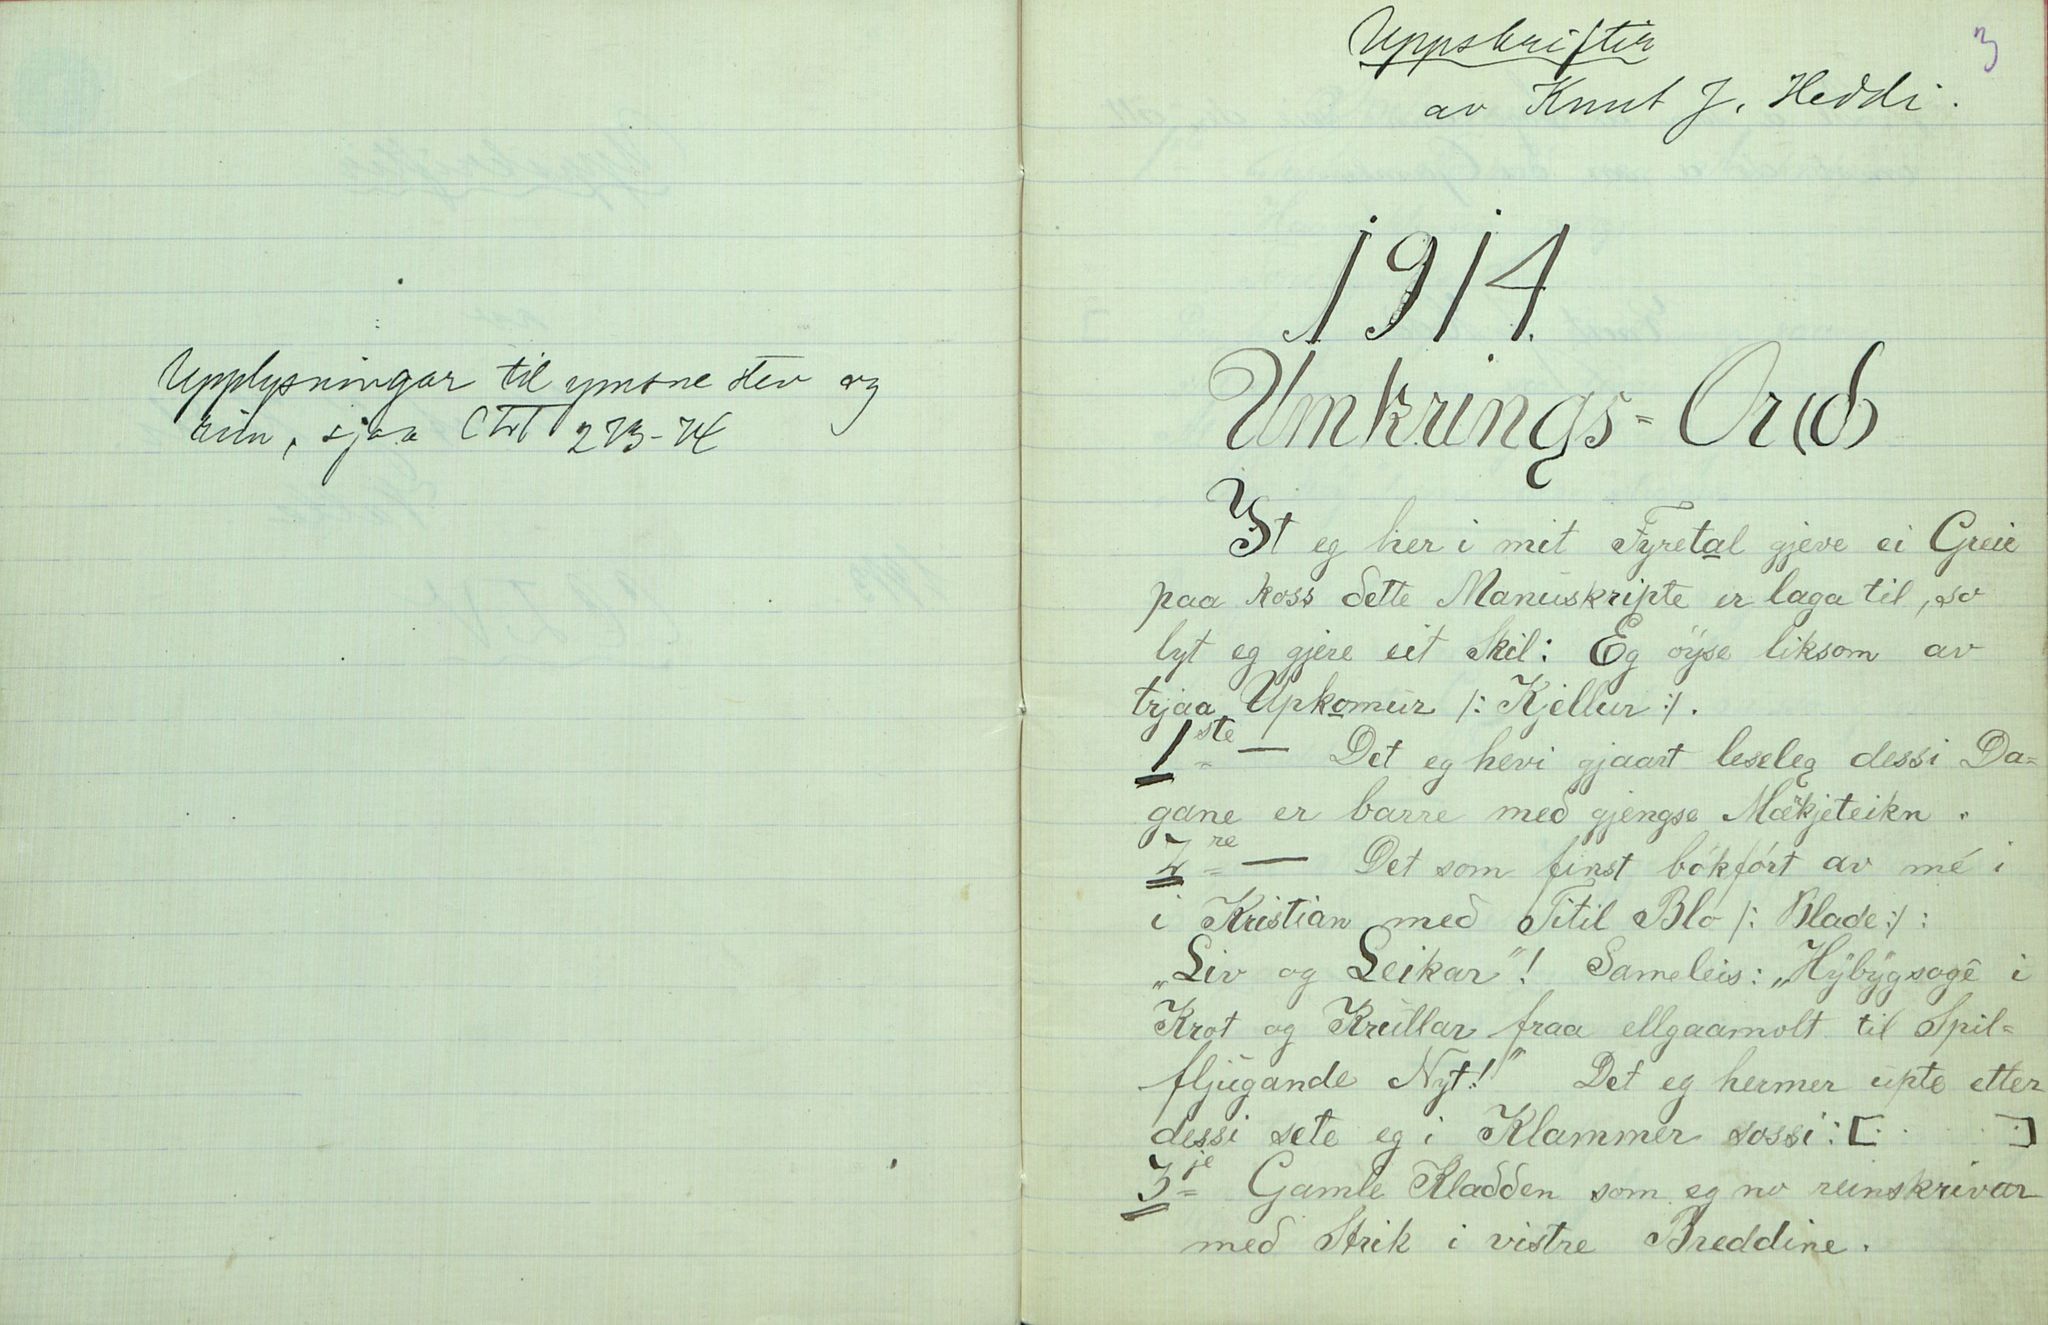 Upplysningar til ymsne stev og
rim, sjaa 273-74
Uppskrifter
3
av Knut J. Heddi.
1914.
Umkrings-Ord
It eg her i mit Fyretal gjeve ei Greie
paa koss dette Manuskripte er laga til, so
lyt eg gjere eit Skil: Eg öyse liksom av
trjaa Upkomur /: Kjellur :/.
1ste — Det eg hevi gjaart leseleg dessi Da=
gane er barre med gjengse Mærkjeteikn.
2re — Det som finst bókfórt av mé i
i Kristian med Titil Blo /: Blade :/ :
„Liv og Leikar"! Sameleis: „Hýbýgsogê i
Krot og Krullar fraa ellgaamolt til Spil=
fljugande Nyt!" Det eg hermer upte etter
dessi sete eg i Klammer sossi: [: . . :]
3je Gamle Kladden som eg no reinskrivar
med Strik i vistre Breddine.